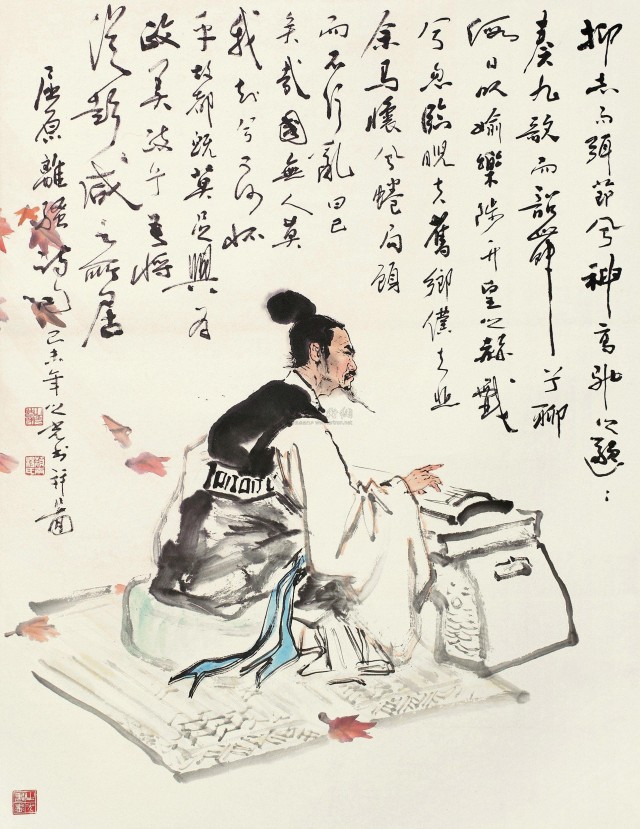 抑志而弭節兮神高馳之邈：
奏九歌而韶舞兮聊
假日以媮樂陟升皇之赫戲
兮忽臨睨夫舊鄉僕夫悲
余馬懷兮蜷局顧
而不行亂曰已
矣哉國無人莫
我知兮又何懷
乎故都既莫足與為
美政兮吾將
從彭咸之所居
屈原離騷詩句
己未年之光书